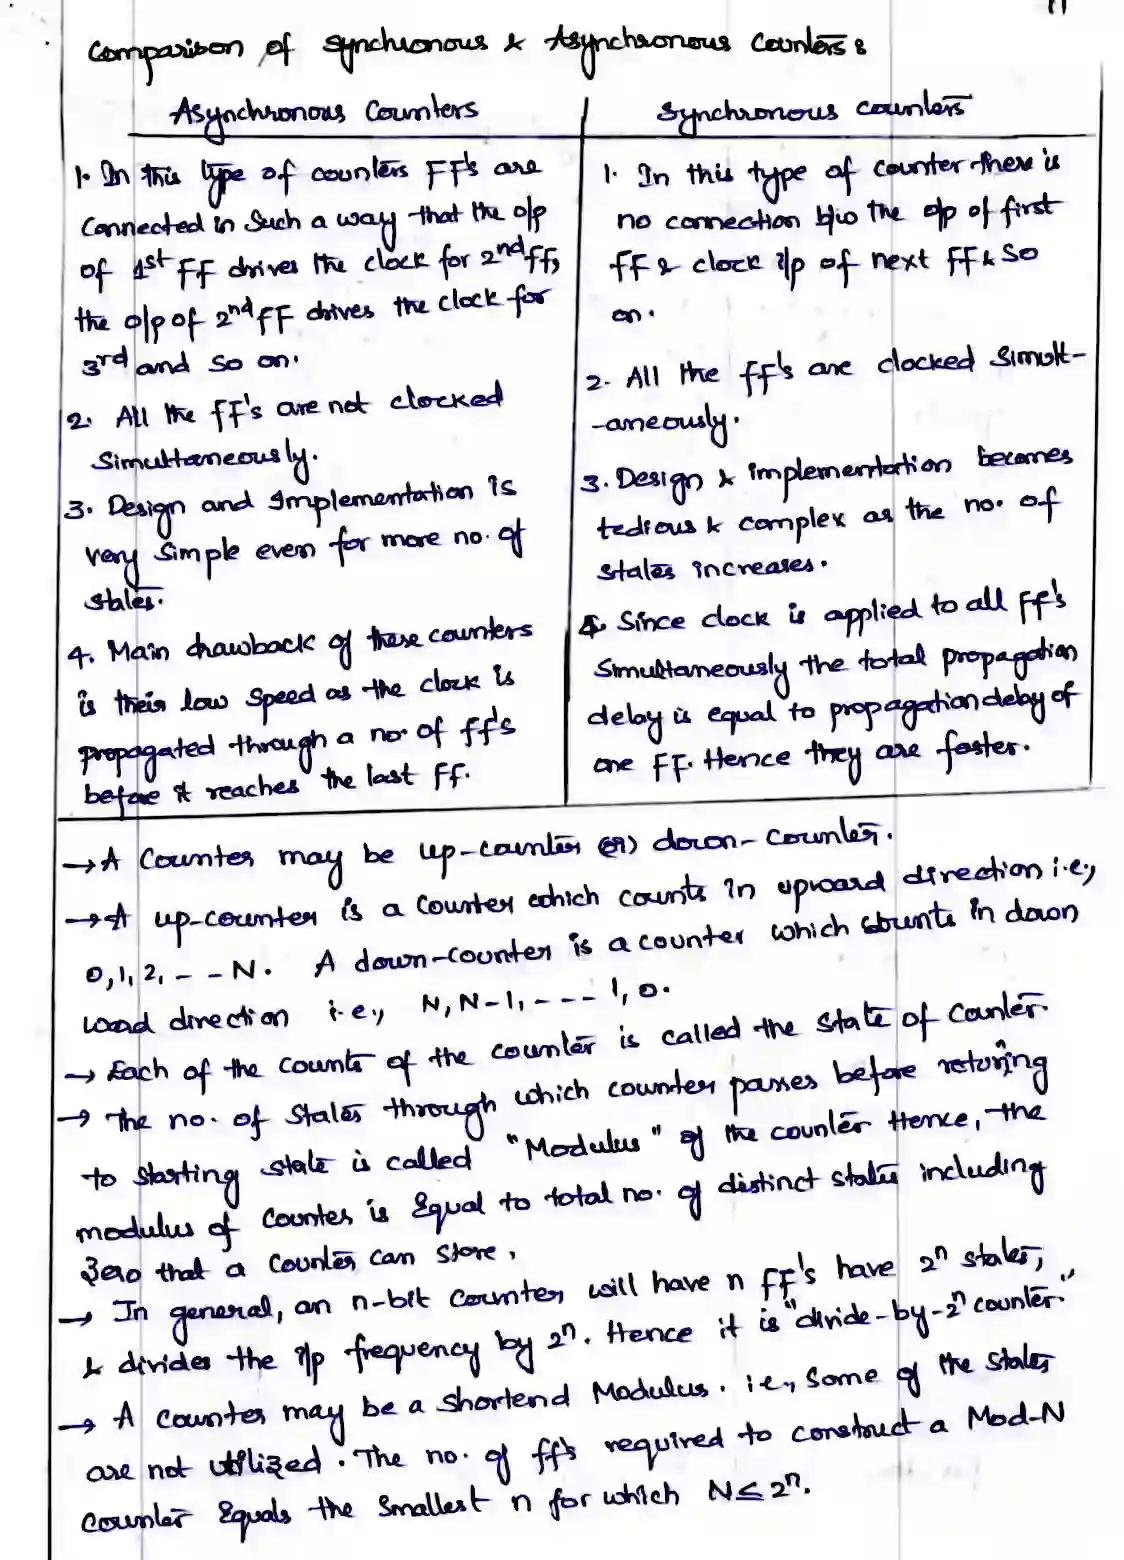 11
Comparison of synchronous & Asynchronous Counters :
Asynchronous Counters
1. In this type of counters FF's are
Connected in such a way that the o/p
of 1st FF drives the clock for 2nd ff,
the o/p of 2nd FF drives the clock for
3rd and so on.
2. All the FF's are not clocked
Simultaneously.
3. Design and Implementation is
very simple even for more no. of
states.
4. Main drawback of these counters
is their low speed as the clock is
propagated through a no. of ff's
before it reaches the last FF.
Synchronous counters
1. In this type of counter there is
no connection b/w the o/p of first
FF & clock i/p of next FF & so
on.
2. All the FF's are clocked Simult-
-aneously.
3. Design & implementation becomes
tedious & complex as the no. of
states increases.
4. Since clock is applied to all FF's
Simultaneously the total propagation
delay is equal to propagation delay of
one FF. Hence they are faster.
→ A Counter may be up-counter (or) down-counter.
→ A up-counter is a Counter which counts in upward direction i.e.,
0, 1, 2, - - N. A down-counter is a counter which counts in down
ward direction i.e., N, N-1, - - - 1, 0.
→ Each of the counts of the counter is called the state of counter.
→ The no. of states through which counter passes before returing
to starting state is called "Modulus" of the counter Hence, the
modulus of Counter is Equal to total no. of distinct states including
Zero that a counter can store,
→ In general, an n-bit counter will have n FF's have 2ⁿ states,
& divides the i/p frequency by 2ⁿ. Hence it is "divide-by-2ⁿ counter."
→ A counter may be a shortend Modulus. i.e., Some of the states
are not utilized. The no. of ff's required to construct a Mod-N
counter Equals the Smallest n for which N ≤ 2ⁿ.